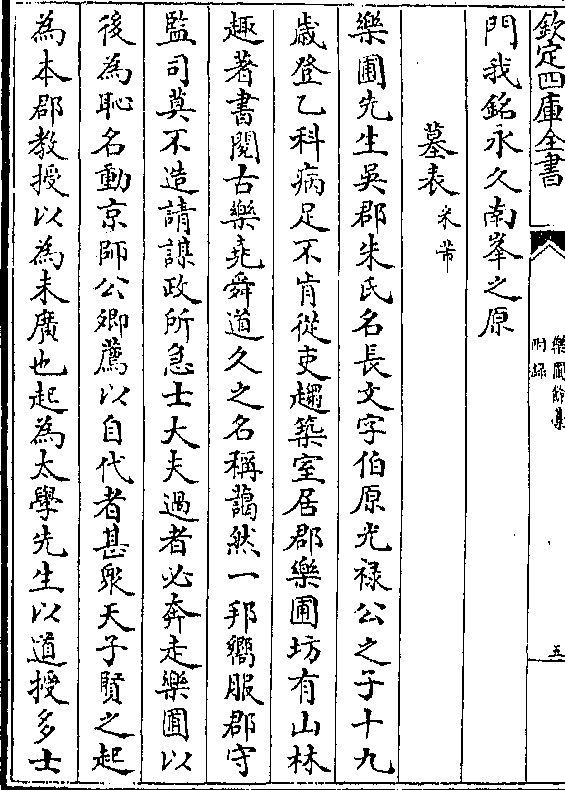 欽定四庫全書
樂圃餘藁
附録
五
門我銘永久南峯之原
墓表
米芾
樂圃先生吳郡朱氏名長文字伯原光禄公之子十九
歳登乙科病足不肯從吏趨築室居郡樂圃坊有山林
趣著書閲古樂堯舜道久之名稱藹然一邦嚮服郡守
監司莫不造請謀政所急士大夫過者必奔走樂圃以
後為恥名動京師公卿薦以自代者甚衆天子賢之起
為本郡教授以為未廣也起為太學先生以道授多士